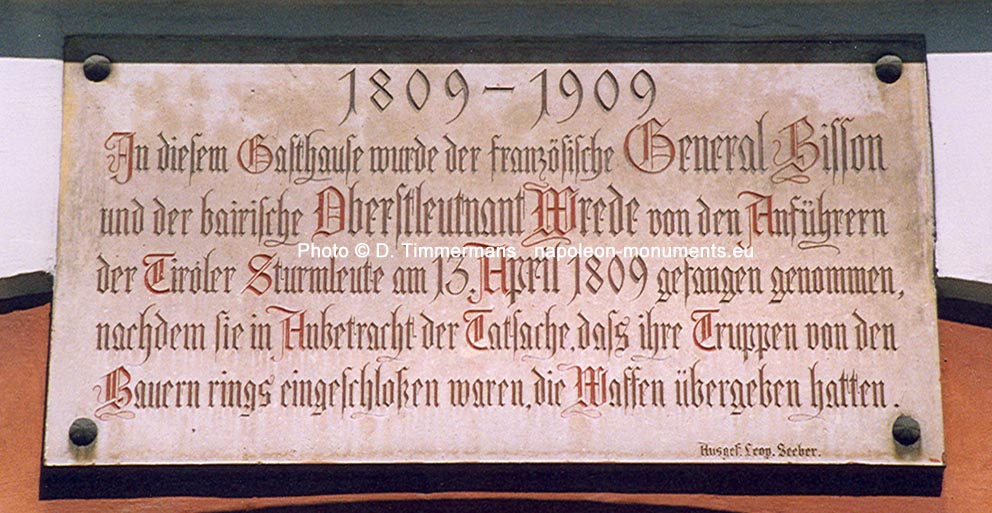 1809 – 1909
In diesem Gasthause wurde der französische General Bisson
und der bairische Oberstleutnant Wrede von den Anführern
Photo © D. Timmermans napoleon-monuments.eu
der Tiroler Sturmleute am 13. April 1809 gefangen genommen,
nachdem sie in Anbetracht der Tatsache, dass ihre Truppen von den
Bauern rings eingeschloßen waren, die Waffen übergeben hatten.
Ausgef. Leop. Seeber.